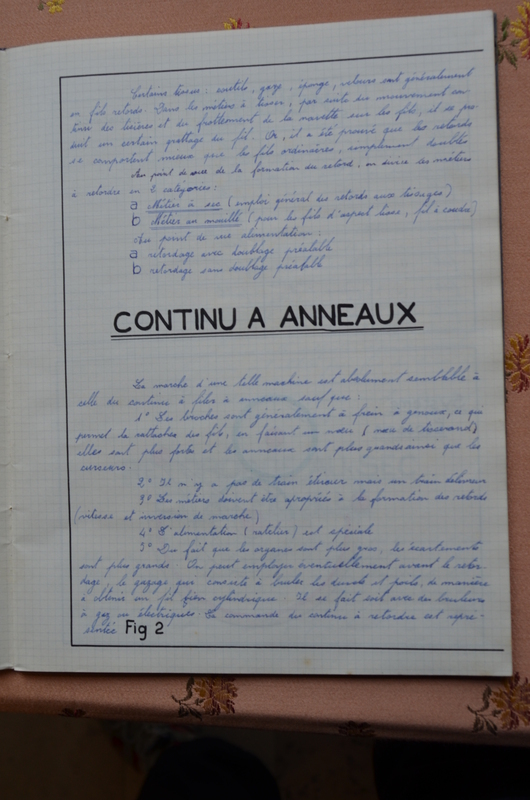 Certains tissus : coutils, gaze, éponge, velours sont généralement
en fils retords. Dans les métiers à tisser, par suite du mouvement con-
tinu des lisières et du frottement de la navette sur les fils, il se pro-
duit un certain grattage du fil. Or, il a été prouvé que les retords
se comportent mieux que les fils ordinaires, simplement doublés
Au point de vue de la formation du retord, on divise les métiers
à retordre en 2 catégories :
a Métier à sec (emploi général des retords aux tissages)
b Métier au mouillé (pour les fils d'aspect lisse, fil à coudre)
Au point de vue alimentation :
a retordage avec doublage préalable
b retordage sans doublage préalable
CONTINU A ANNEAUX
La marche d'une telle machine est absolument semblable à
celle du continu à filer à anneaux sauf que :
1° Les broches sont généralement à frein à genoux, ce qui
permet le rattache des fils, en faisant un nœud (nœud de tisserand)
elles sont plus fortes et les anneaux sont plus grands ainsi que les
curseurs.
2° Il n'y a pas de train étireur mais un train délivreur
3° Les métiers doivent être appropriés à la formation des retords
(vitesse et inversion de marche)
4° L'alimentation (ratelier) est spéciale
5° Du fait que les organes sont plus gros, les écartements
sont plus grands. On peut employer éventuellement avant le retor-
dage, le gazage qui consiste à brûler les duvets et poils, de manière
à obtenir un fil bien cylindrique. Il se fait soit avec des brûleurs
à gaz ou électriques. La commande des continu à retordre est repré-
sentée Fig 2